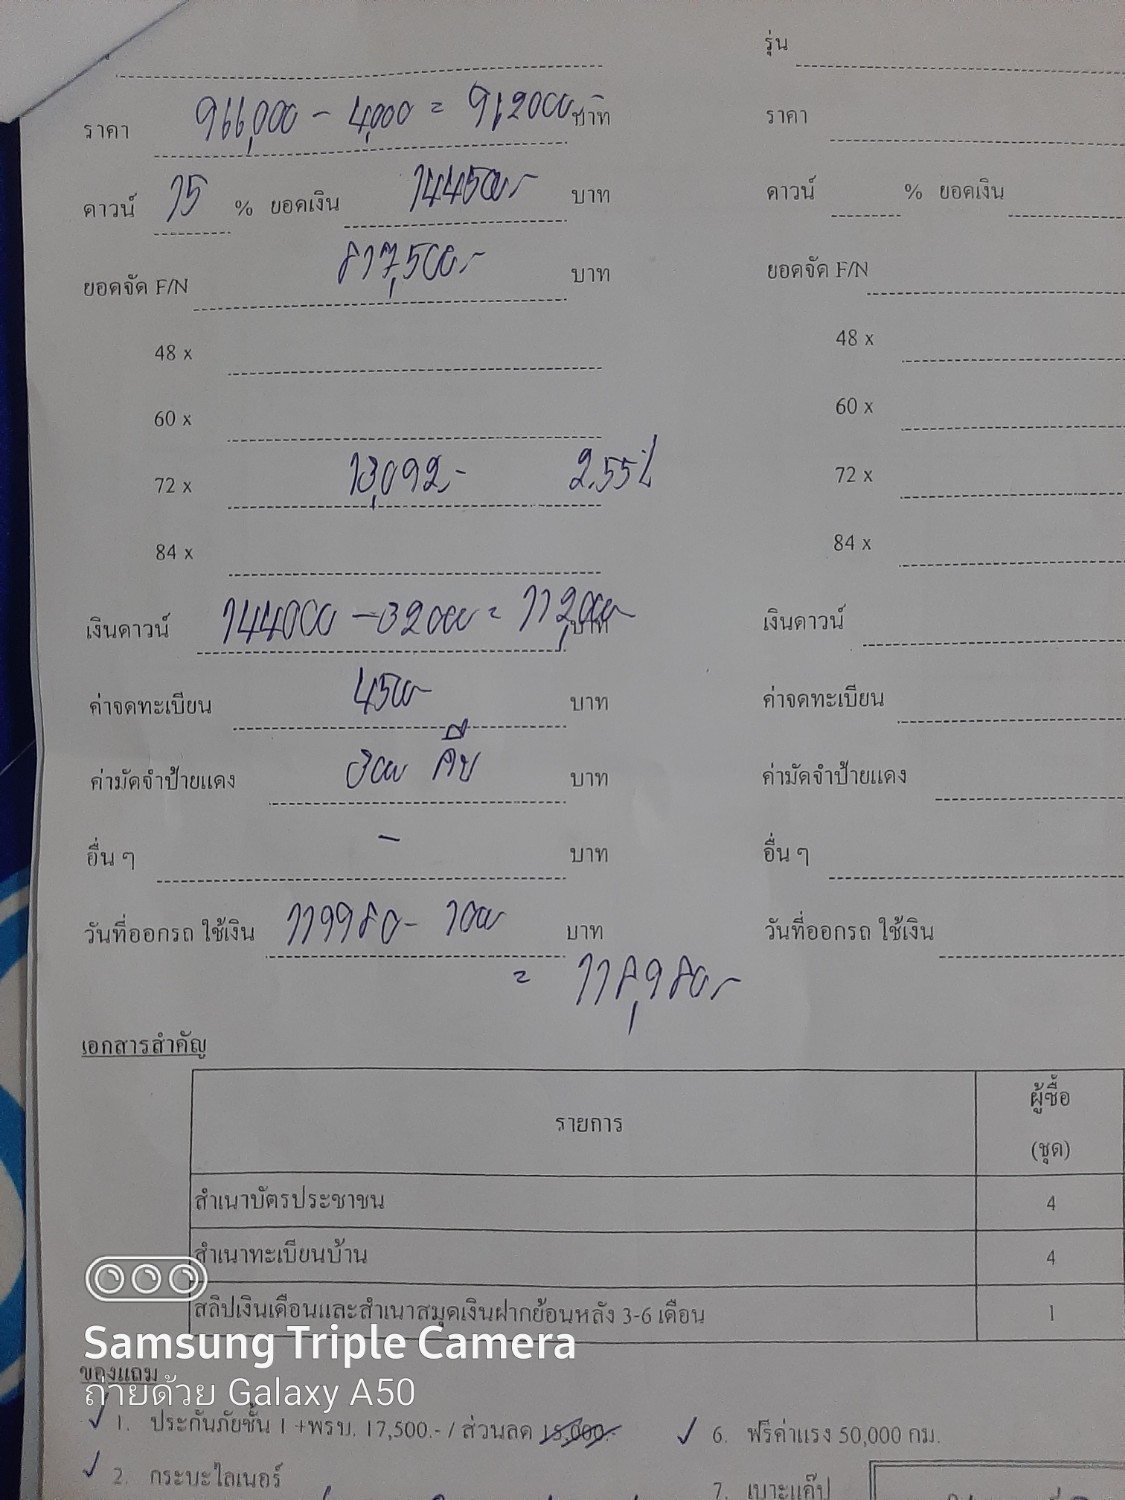 รุ่น
ราคา 966,000 - 4,000 = 962000 บาท
ราคา
ดาวน์ 15 % ยอดเงิน 144500.- บาท
ดาวน์ % ยอดเงิน
ยอดจัด F/N 817,500.- บาท
ยอดจัด F/N
48 x
48 x
60 x
60 x
72 x 13,092.- 2.55%
72 x
84 x
84 x
เงินดาวน์ 144000 - 32000 = 112,000 บาท
เงินดาวน์
ค่าจดทะเบียน 4500 บาท
ค่าจดทะเบียน
ค่ามัดจำป้ายแดง 3000 คืน บาท
ค่ามัดจำป้ายแดง
อื่น ๆ - บาท
อื่น ๆ
วันที่ออกรถ ใช้เงิน 119980 - 1000 บาท
วันที่ออกรถ ใช้เงิน
= 118,980.-
เอกสารสำคัญ
รายการ
ผู้ซื้อ
(ชุด)
สำเนาบัตรประชาชน 4
สำเนาทะเบียนบ้าน 4
สลิปเงินเดือนและสำเนาสมุดเงินฝากย้อนหลัง 3-6 เดือน 1
Samsung Triple Camera
ของแถม
ถ่ายด้วย Galaxy A50
1. ประกันภัยชั้น 1 +พรบ. 17,500.- / ส่วนลด 15,000.-
6. ฟรีค่าแรง 50,000 กม.
2. กระบะไลเนอร์
7. เบาะแค๊ป